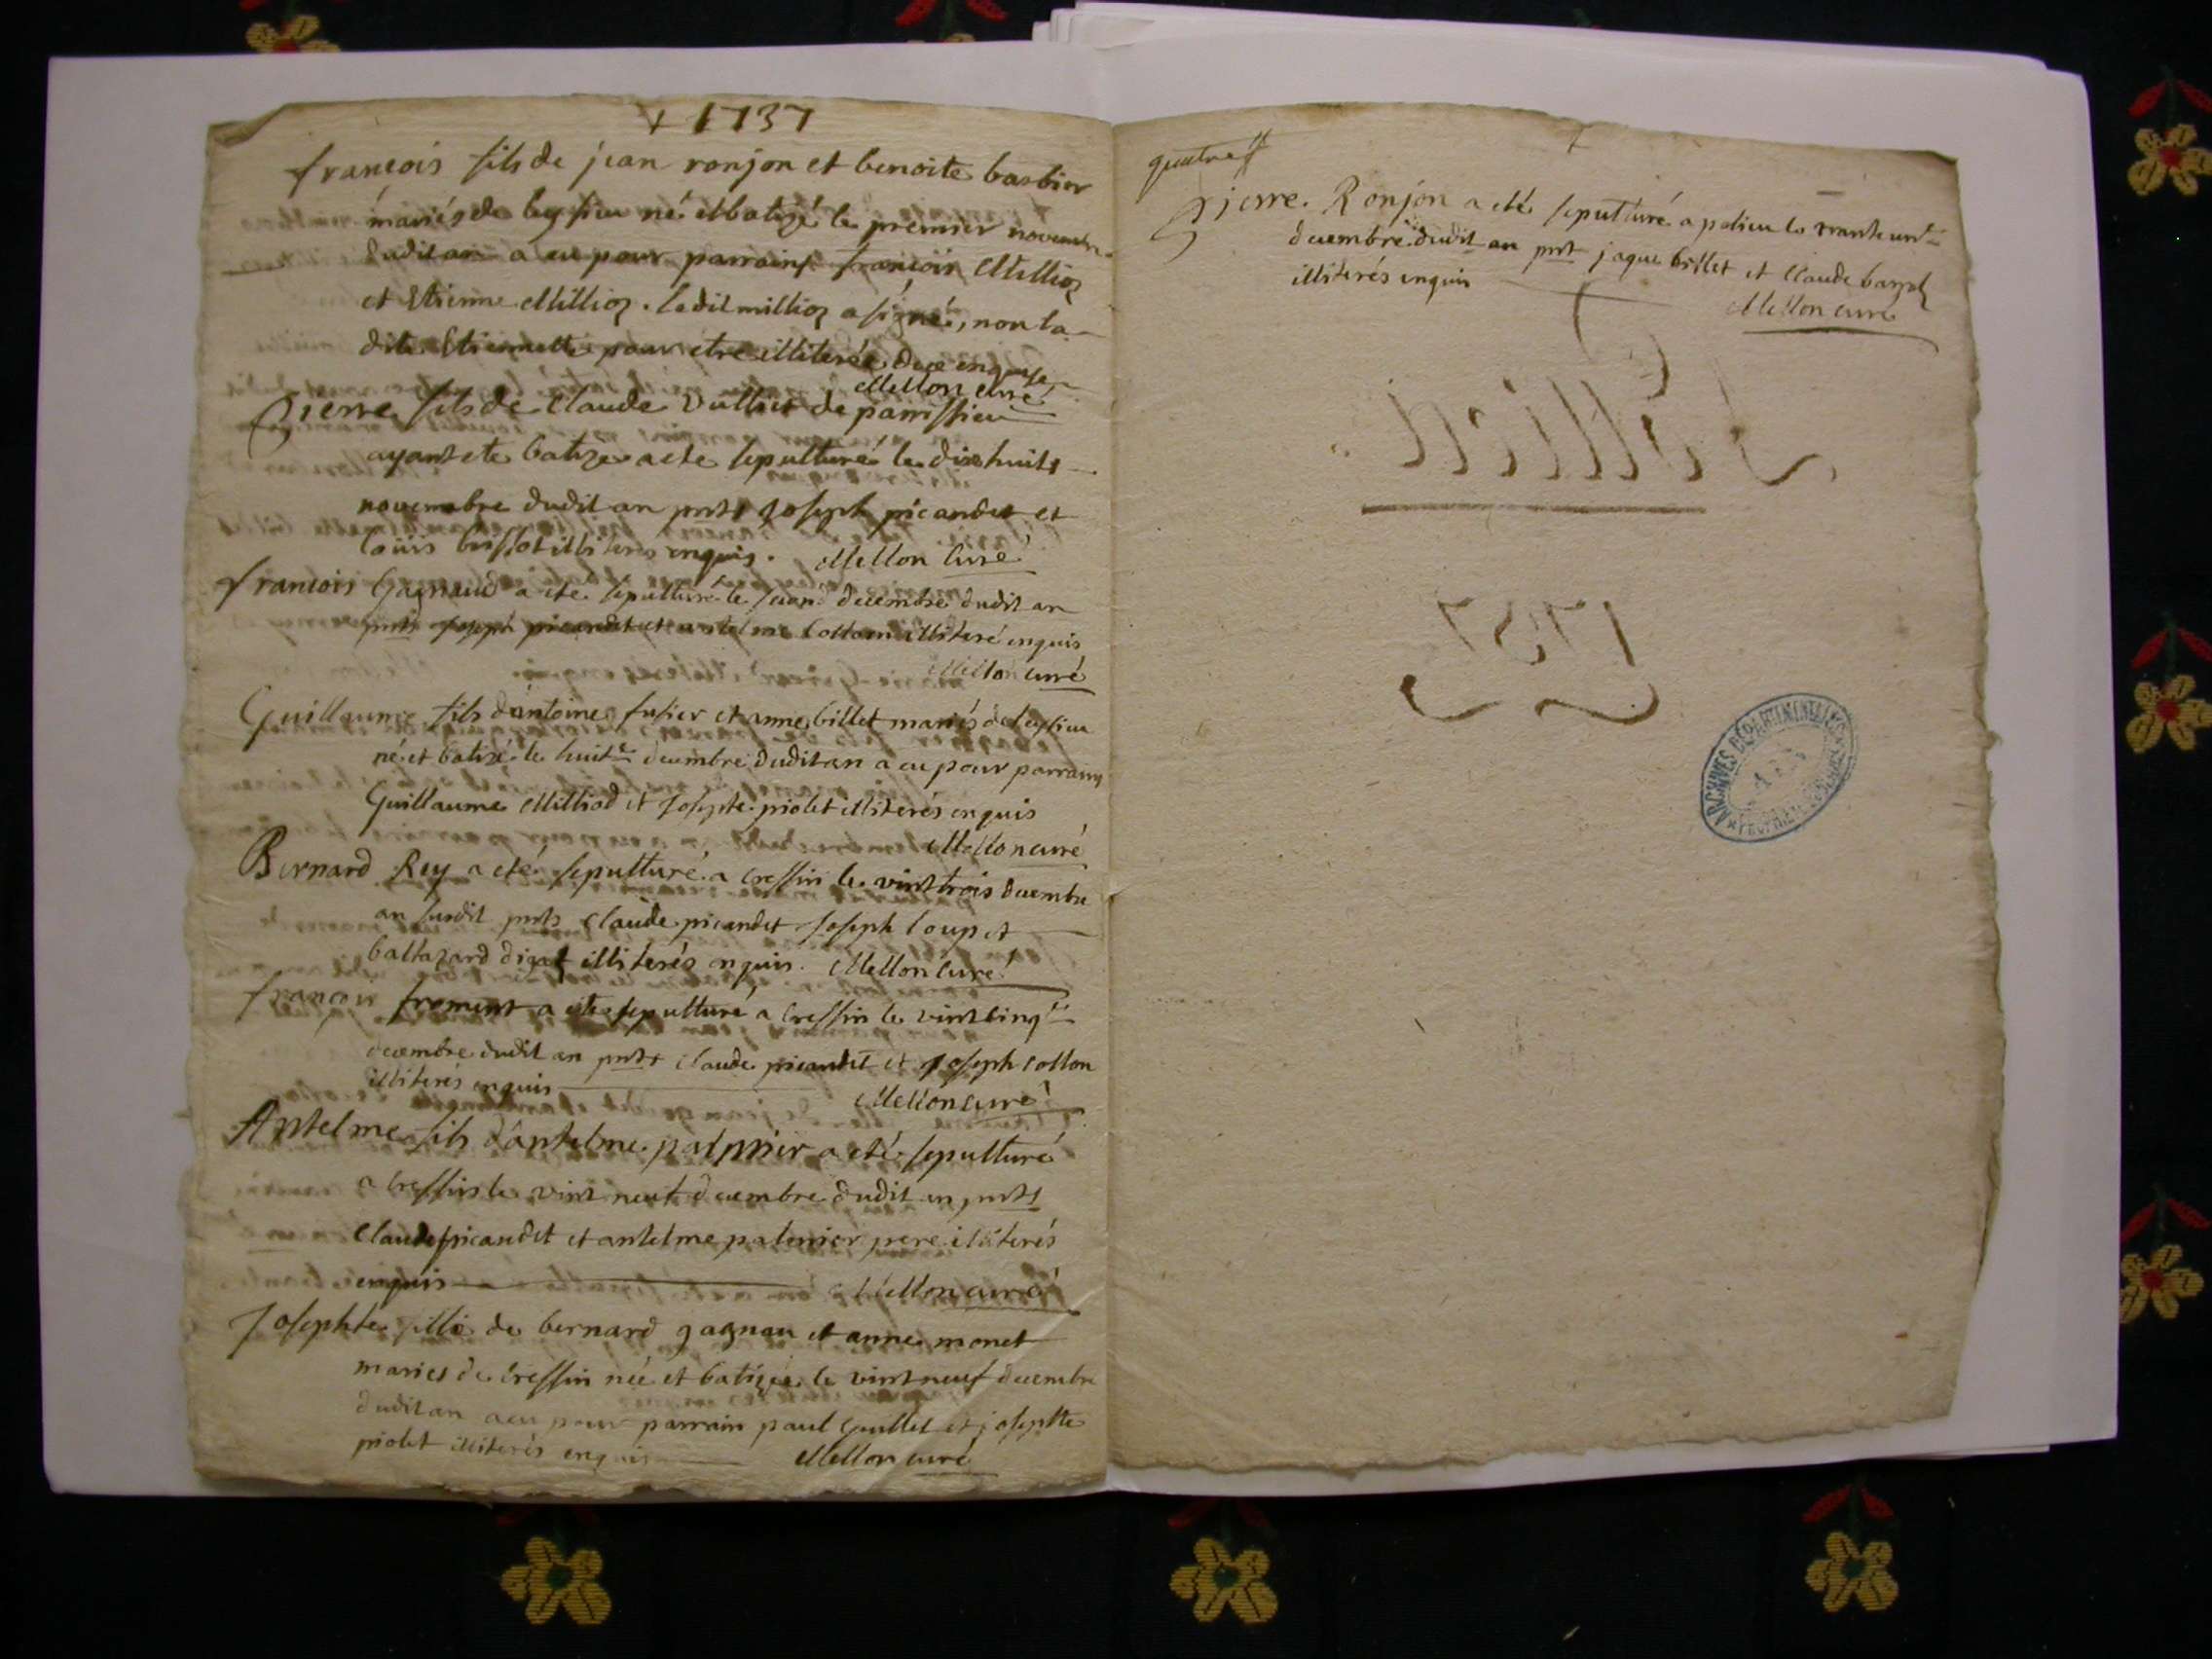 + 1737
francois fils de jean ronjon et benoite barbier
mariés de leyssieu né et batizé le premier novembre
dudit an a eu pour parrains francois Millioz
et Etienne Millioz. ledit millioz a signé, non la
dite Etiennette pour etre illiterée dece enquise
Mellon curé
Pierre fils de Claude Vulliet de parrissieu
ayant ete batizé a eté sepulturé le dixhuit
novembre dudit an pnts Joseph picandet et
louis illiteres enquis. Mellon Curé
francois Gagnaud a eté sepulturé le second decembre dudit an
pnts Joseph picandet et antelme Collom illiteré enquis
Mellon curé
Guillaume fils d'antoine fusier et anne billet mariés de leyssieu
né et batizé le huit.e decembre dudit an a eu pour parrains
Guillaume Milliod et Josepte piolet illiterés enquis
Mellon curé
Bernard Rey a eté sepulturé a cressin le vint trois decembre
an susdit pnts Claude picandet Joseph loup et
baltazard illiterés enquis. Mellon Curé
françois froment a ete sepulturé a Cressin le vint cinq.e
decembre dudit an pnts Claude picandet et Joseph collon
illiterés enquis Mellon curé
Antelme fils d'antelme palmier a eté sepulturé
a Cressin le vint neuf decembre dudit an pnts
Claude picandet et antelme palmier pere illiterés
enquis Mellon curé
Josephte fille de bernard gagnau et anne monet
maries de Cressin née et batizée le vint neuf decembre
dudit an a eu pour parrain paul Guillet et josephte
piolet illiterés enquis Mellon curé
quatre
Pierre Ronjon a eté sepulturé a polieu le trante un.e
decembre dudit an pnt jaque billet et Claude
illiterés enquis
Mellon curé
1737
ARCHIVES DÉPARTEMENTALES